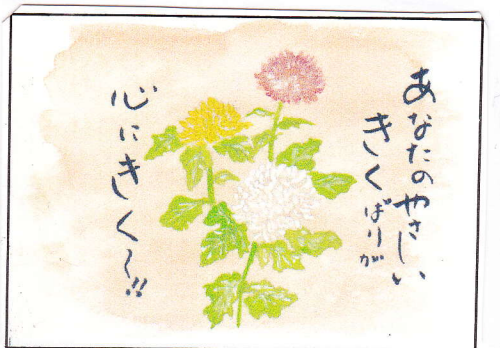 あなたのやさしい
きくばりが
心にきく〜!!